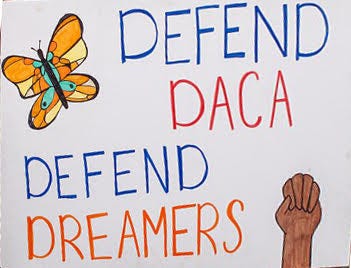 DEFEND
DACA
DEFEND
DREAMERS